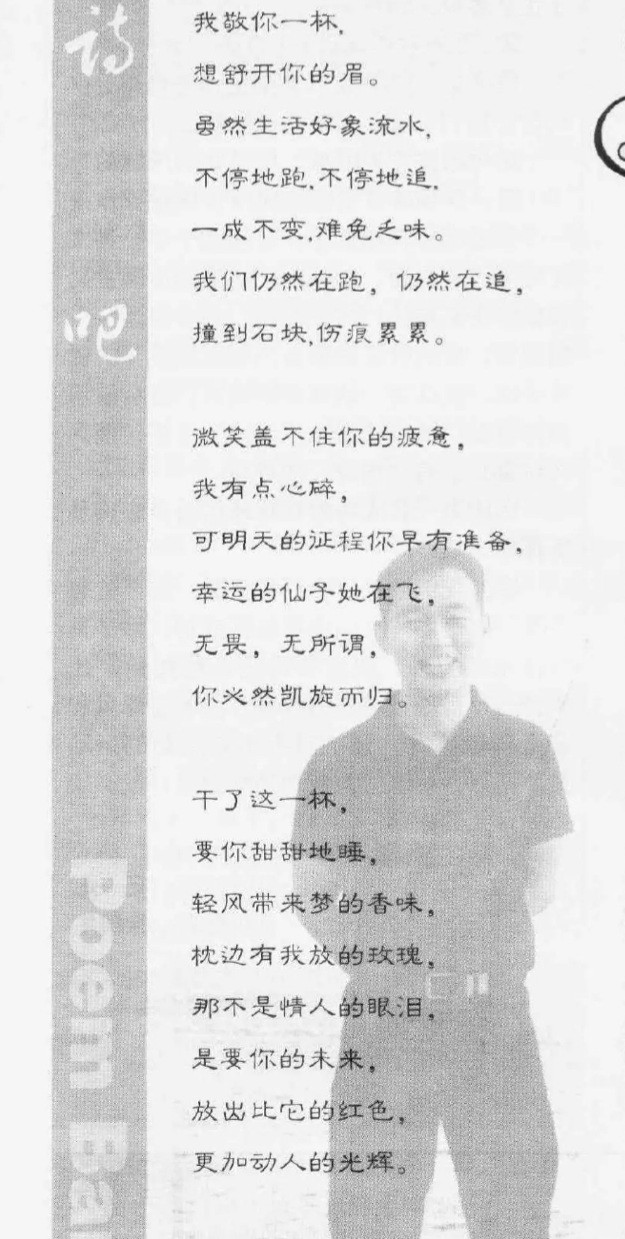 诗吧
Poem Ba
我敬你一杯,
想舒开你的眉。
虽然生活好象流水,
不停地跑,不停地追,
一成不变,难免乏味。
我们仍然在跑，仍然在追，
撞到石块,伤痕累累。
微笑盖不住你的疲惫，
我有点心碎，
可明天的征程你早有准备，
幸运的仙子她在飞，
无畏，无所谓，
你必然凯旋而归。
干了这一杯，
要你甜甜地睡，
轻风带来梦的香味，
枕边有我放的玫瑰，
那不是情人的眼泪，
是要你的未来，
放出比它的红色，
更加动人的光辉。